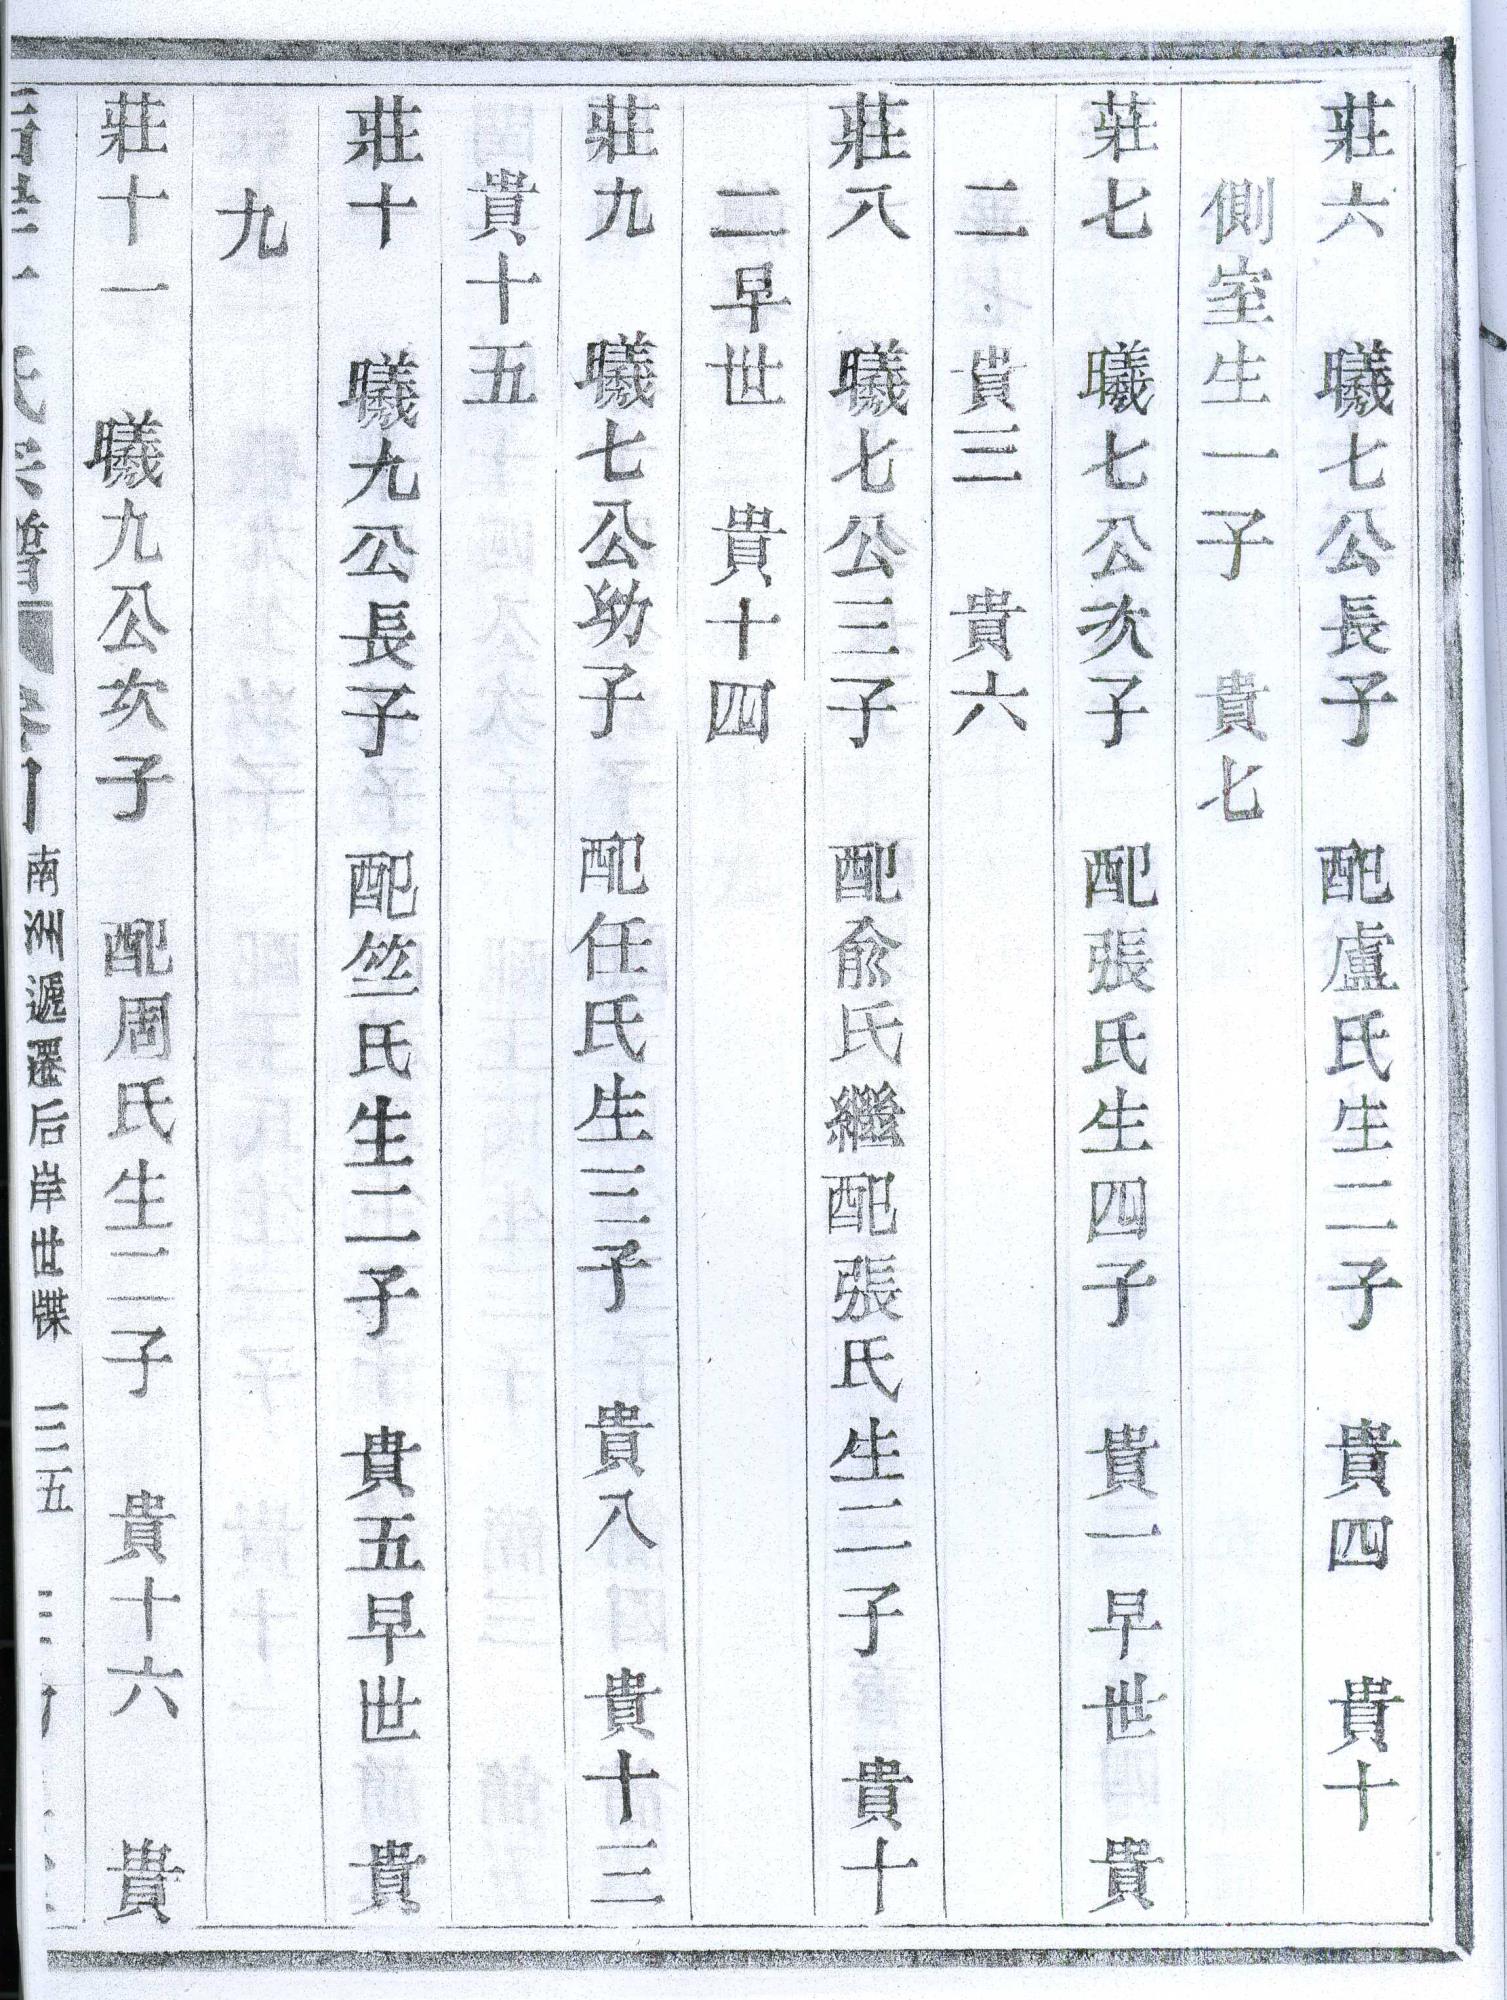 莊六 曦七公長子 配盧氏生二子 貴四 貴十
側室生一子 貴七
莊七 曦七公次子 配張氏生四子 貴一早世 貴
二 貴三 貴六
莊八 曦七公三子 配俞氏繼配張氏生二子 貴十
二早世 貴十四
莊九 曦七公幼子 配任氏生三子 貴八 貴十三
貴十五
莊十 曦九公長子 配竺氏生二子 貴五早世 貴
九
莊十一 曦九公次子 配周氏生二子 貴十六 貴
氏宗譜 南洲遞遷后岸世牒 三五